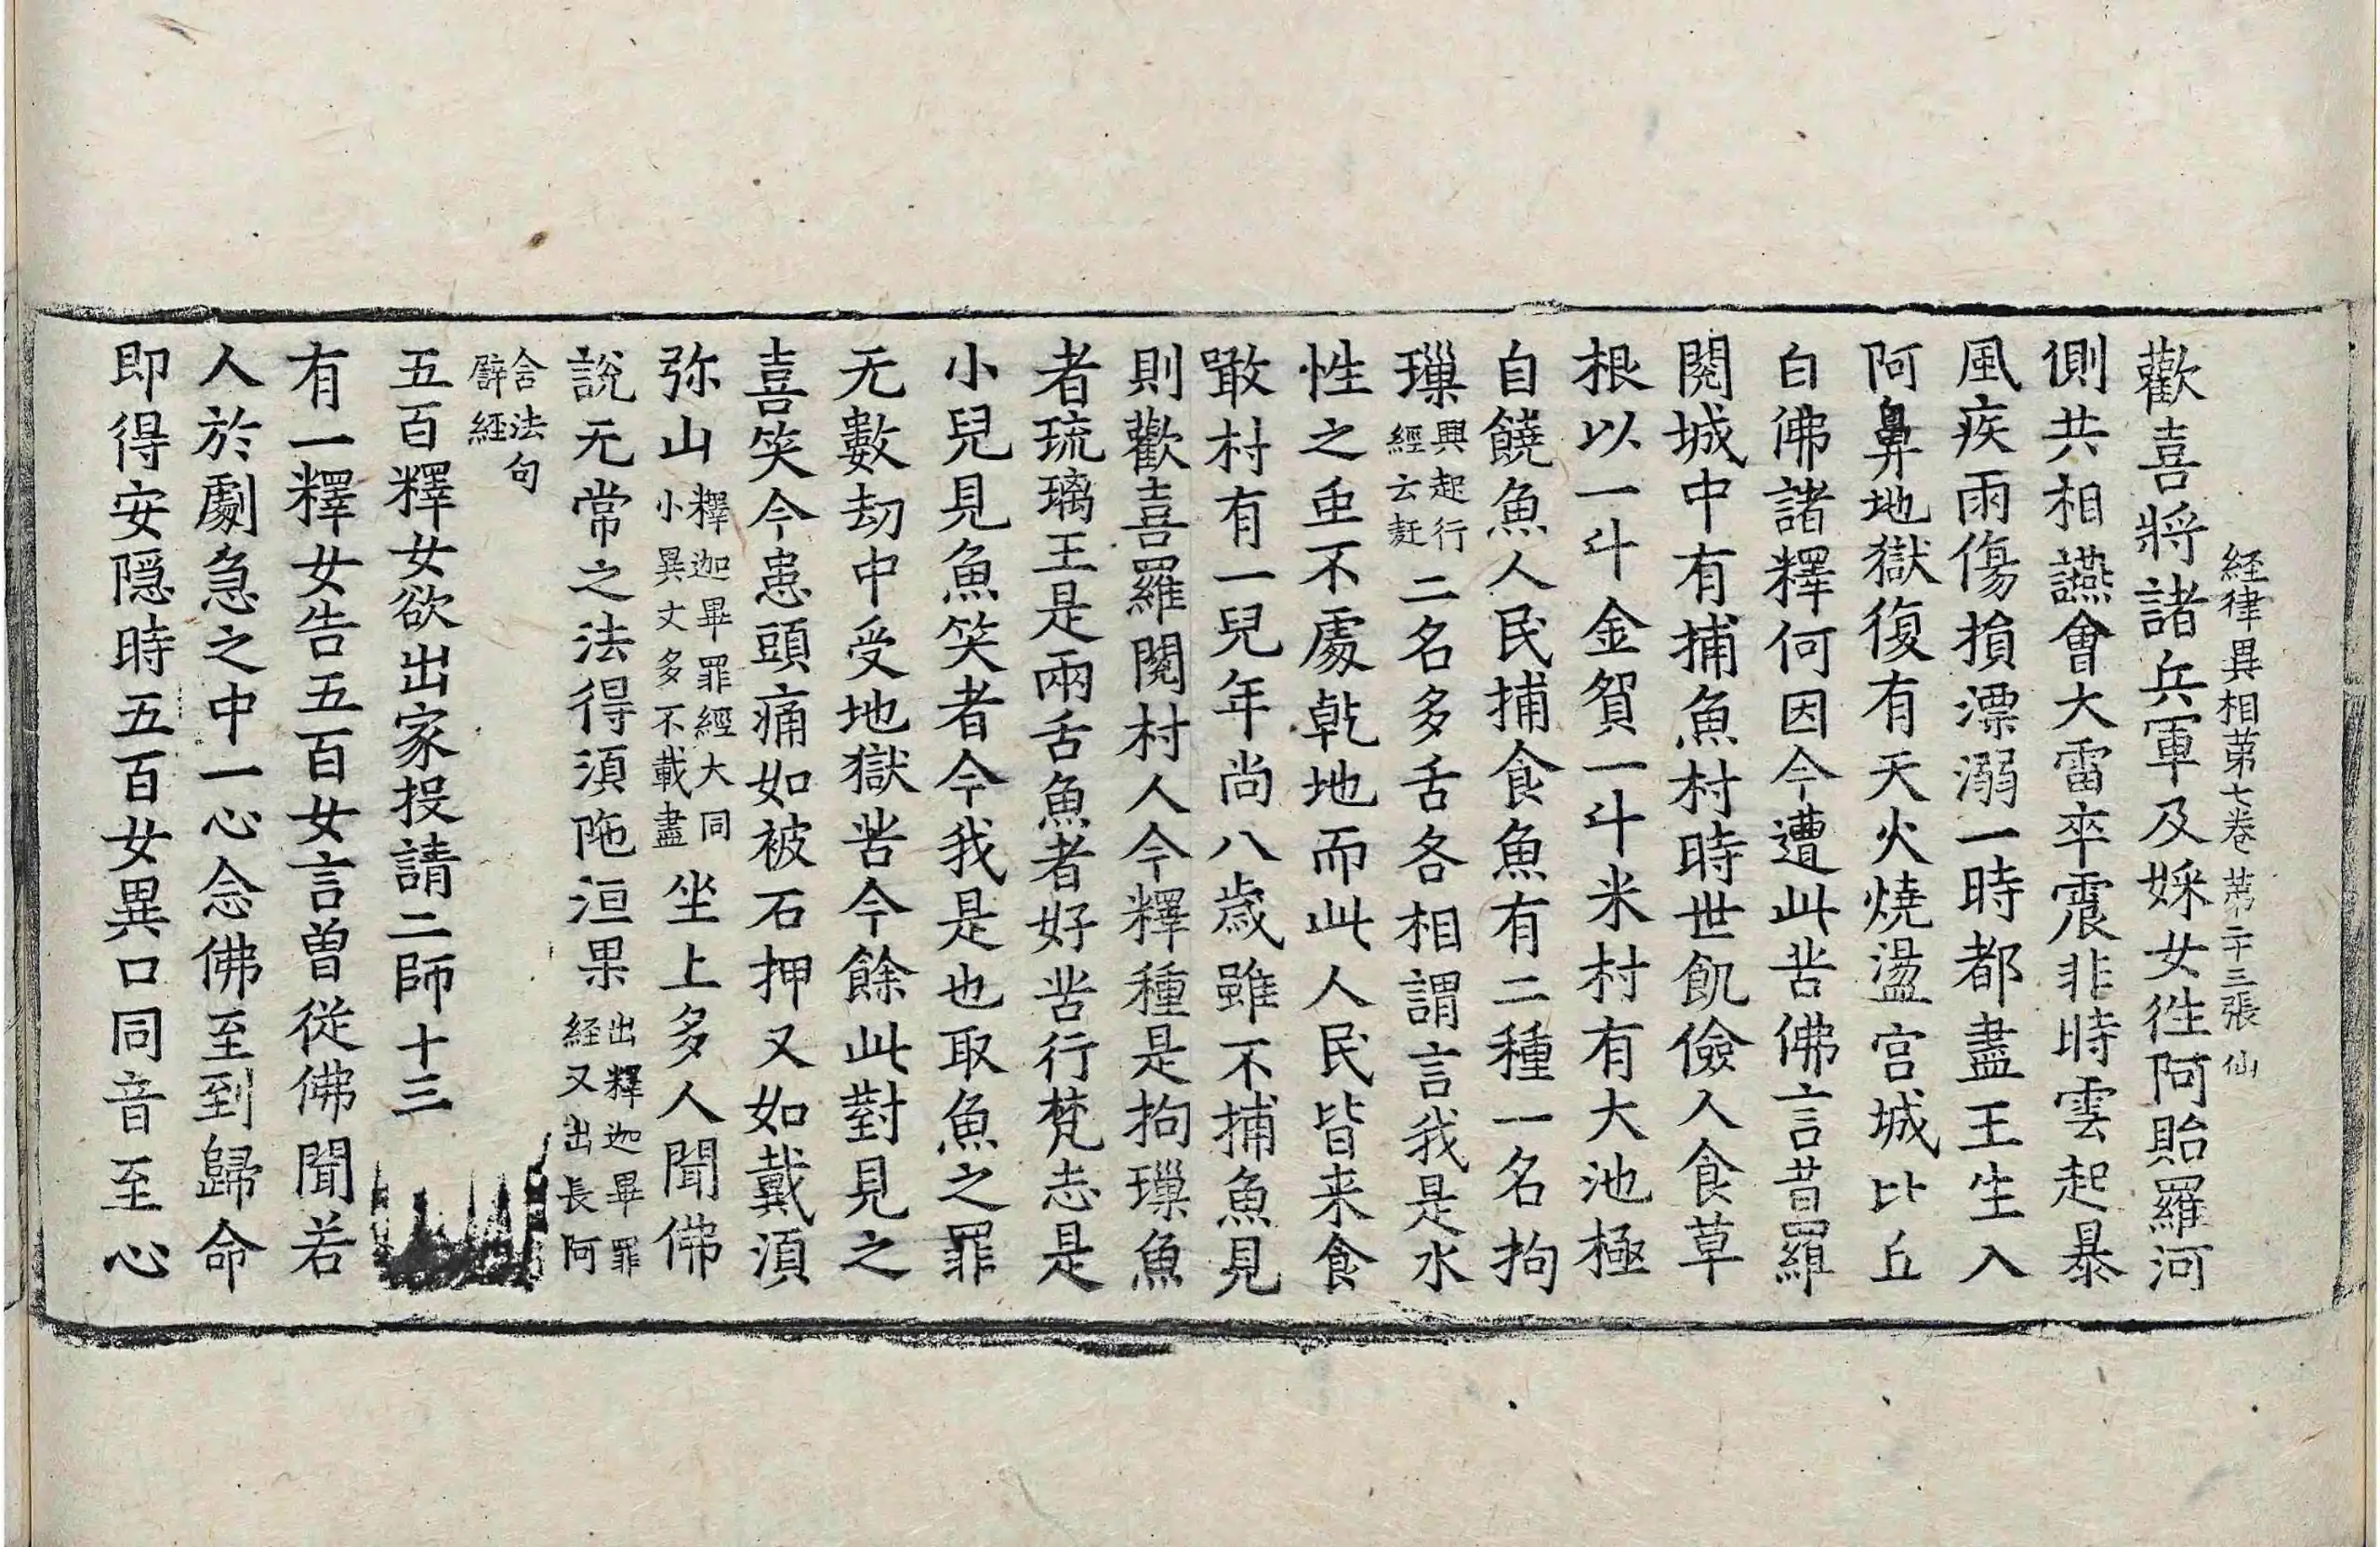 経律異相苐七卷 苐二十三張 仙
歡喜將諸兵軍及婇女徃阿貽羅河
側共相讌會大雷卒震非時雲起暴
風疾雨傷損漂溺一時都盡王生入
阿鼻地獄復有天火燒盪宮城比丘
白佛諸釋何因今遭此苦佛言昔羅
閱城中有捕魚村時世飢儉人食草
根以一斗金貿一斗米村有大池極
自饒魚人民捕食魚有二種一名拘
璅興起行經云䴬二名多舌各相謂言我是水
性之虫不處乹地而此人民皆来食
噉村有一兒年尚八歲雖不捕魚見
則歡喜羅閱村人今釋種是拘璅魚
者琉璃王是兩舌魚者好苦行梵志是
小兒見魚笑者今我是也取魚之罪
无數劫中受地獄苦今餘此對見之
喜笑今患頭痛如被石押又如戴湏
弥山釋迦畢罪經大同小異丈多不載盡坐上多人聞佛
說无常之法得湏陁洹果出釋迦畢罪経又出長阿
含法句辟経
五百釋女欲出家投請二師十三
有一釋女告五百女言曾從佛聞若
人於劇急之中一心念佛至到歸命
即得安隱時五百女異口同音至心